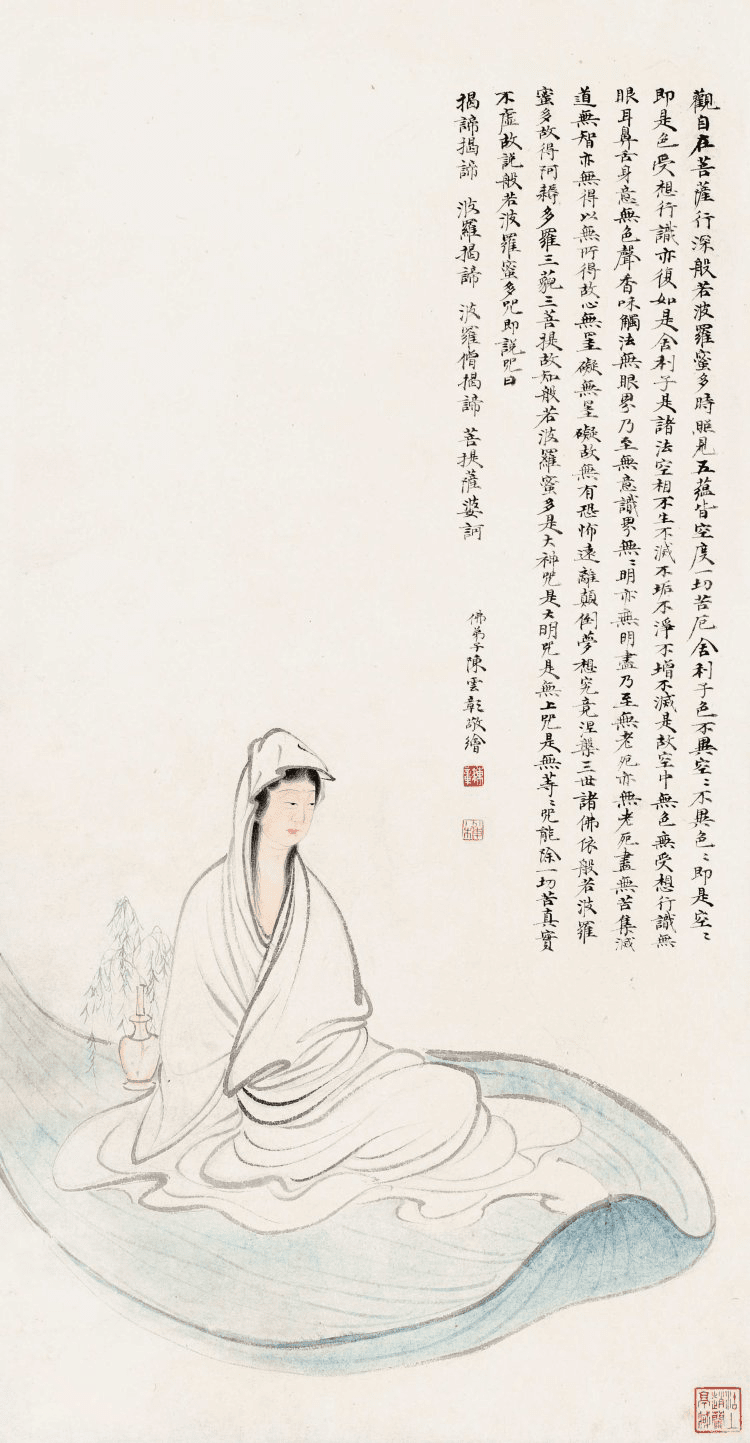 觀自在菩薩行深般若波羅蜜多時照見五蘊皆空度一切苦厄舍利子色不異空〻不異色〻即是空〻
即是色受想行識亦復如是舍利子是諸法空相不生不滅不垢不淨不增不減是故空中無色無受想行識無
眼耳鼻舌身意無色聲香味觸法無眼界乃至無意識界無〻明亦無明盡乃至無老死亦無老死盡無苦集滅
道無智亦無得以無所得故心無罣礙無罣礙故無有恐怖遠離顛倒夢想究竟涅槃三世諸佛依般若波羅
蜜多故得阿耨多羅三藐三菩提故知般若波羅蜜多是大神咒是大明咒是無上咒是無等〻咒能除一切苦真實
不虛故說般若波羅蜜多咒即說咒曰
揭諦揭諦 波羅揭諦 波羅僧揭諦 菩提薩婆訶
佛弟子陳雲彰敬繪